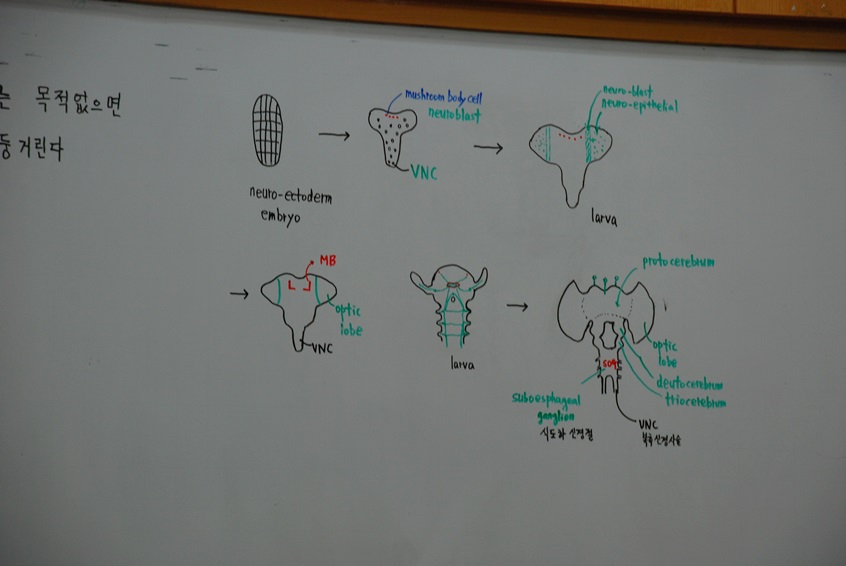 는 목적없으면
둥거린다
neuro-ectoderm
embryo
mushroom body cell
neuroblast
VNC
neuro-blast
neuro-epithelial
larva
MB
optic
lobe
VNC
larva
protocerebrum
optic
lobe
deutocerebrum
triocerebrum
SOG
suboesphageal
ganglion
식도하 신경절
VNC
복측신경사슬